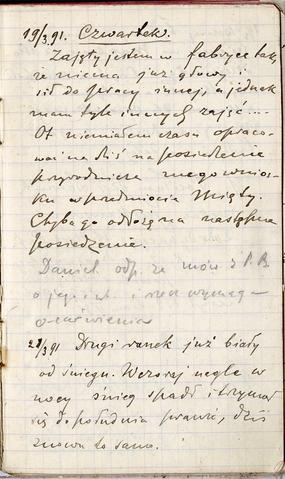 19/3.91. Czwartek.
Zajęty jestem w fabryce tak,
że niema już głowy i
sił do pracy innej, a jednak
mam tyle innych zajęć....
Ot niemiałem czasu opraco-
wać na dziś na posiedzenie
przyrodnicze mego wnios-
ku w przedmiocie Mięty.
Chyba go odłożę na następne
posiedzenie.
Daniel odp. że mów z P. B.
o jego i
21/3 91 Drugi ranek już biały
od śniegu. Wczoraj nagle w
nocy śnieg spadł i trzymał
się do południa prawie, dziś
znowu to samo.